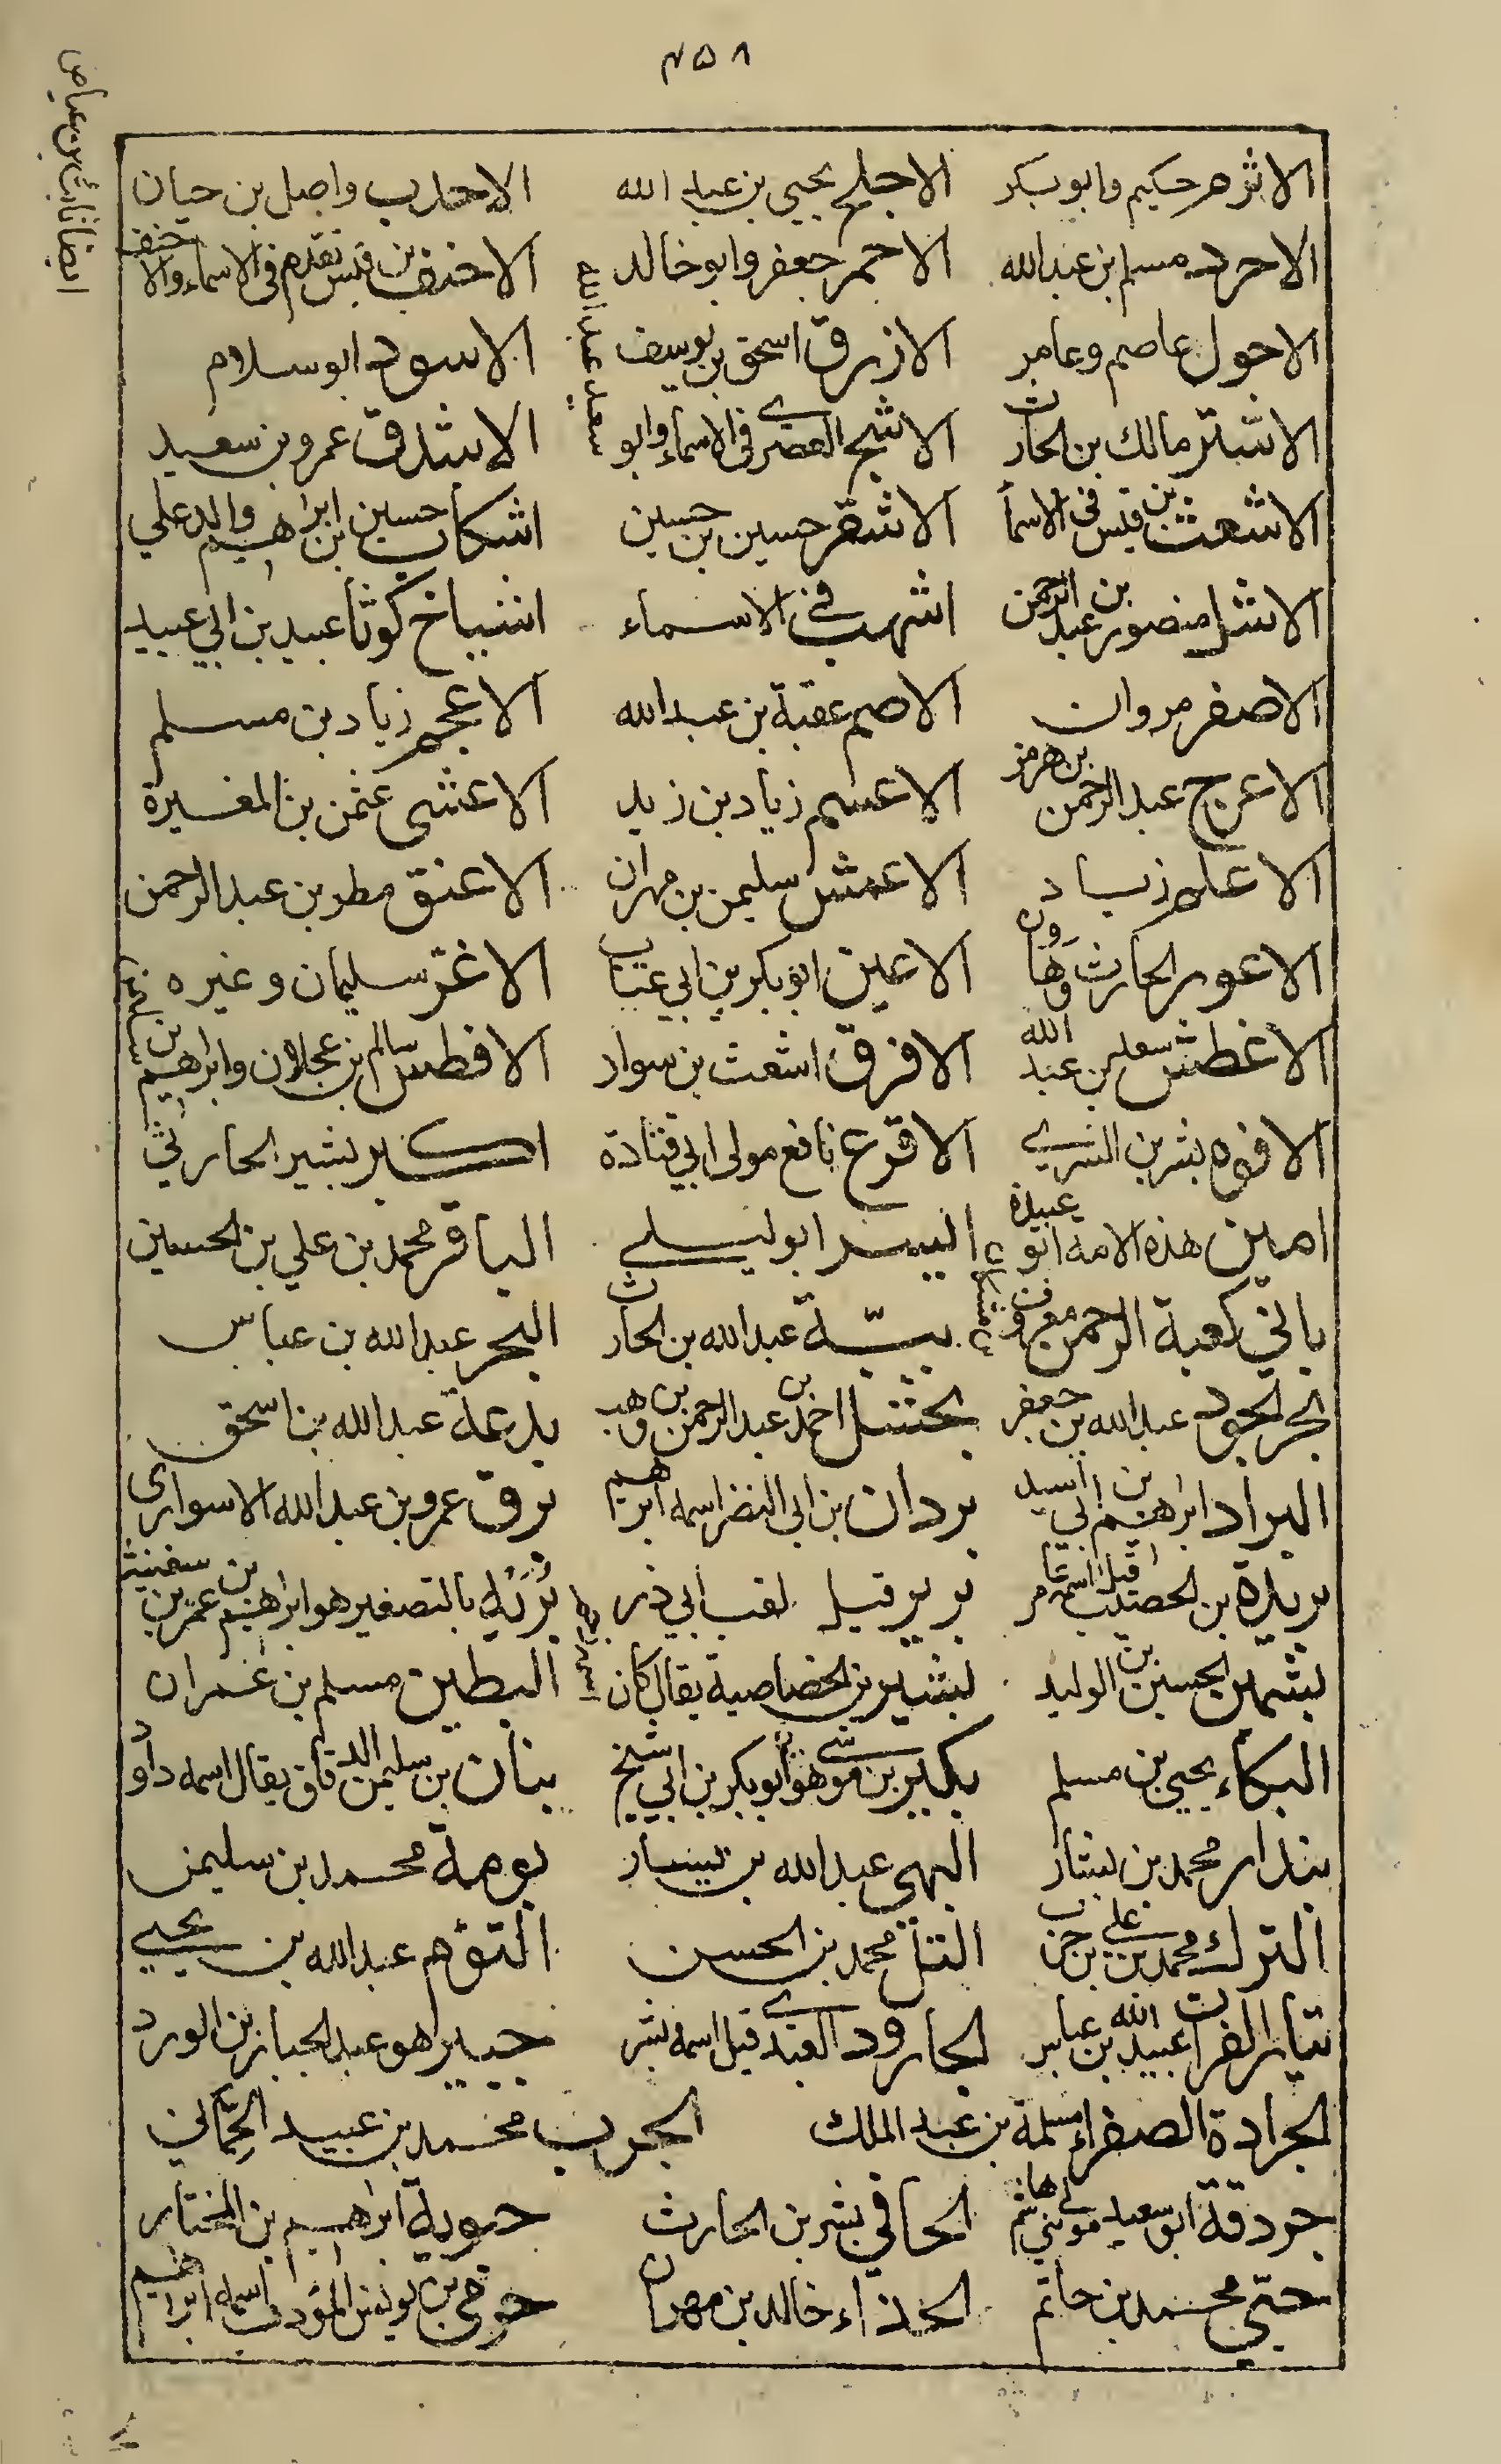 ٤٥٨
الاثرم حكيم وابو بكر الاجلح يحيى بن عبد الله الاحدب واصل بن حيان
الاحرد مسلم بن عبدالله الاحمر جعفر وابو خالد الاحنف بن قيس تقدم في الاسماء والاحنف
ايضا ثابت بن عياض
الاحول عاصم وعامر الازرق اسحق بن يوسف الاسود ابو سلام
الاشتر مالك بن الحارث الاشج العصري في الاسماء وابو سعيد عبد الله الاشدق عمرو بن سعيد
الاشعث بن قيس في الاسما الاشقر حسين بن حسين اشكاب حسين بن ابراهيم والد علي
الاشل منصور بن عبد الرحمن اشهب في الاسماء اشياخ كوثا عبيد بن ابي عبيد
الاصفر مروان الاصم عقبة بن عبد الله الاعجم زياد بن مسلم
الاعرج عبد الرحمن بن هرمز الاعسم زياد بن زيد الاعشى عثمن بن المغيرة
الاعلم زياد الاعمش سليمن بن مهران الاعنق مطر بن عبد الرحمن
الاعور الحارث وهارون الاعين ابو بكر بن ابي عتاب الاغر سليمان وغيره
الاغطش سعد بن عبد الله الافرق اشعث بن سوار الافطس سالم بن عجلان وابراهيم بن
الافوه بشر بن السري الاقرع نافع مولى ابي قتادة اكبر بشير الحارثي
امين هذه الامة ابو عبيدة اليسر ابو ليلى الباقر محمد بن علي بن الحسين
باني كعبة الرحمن معروف ببّة عبد الله بن الحارث البحر عبد الله بن عباس
بحر الجود عبد الله بن جعفر بحشل احمد بن عبد الرحمن بن وهب بدعة عبد الله بن اسحق
البراد ابراهيم بن ابي اسيد بردان بن ابي النضر اسمه ابراهيم برق عمرو بن عبد الله الاسواري
بريدة بن الحصيب قيل اسمه عامر برير قيل لقب ابي ذر بُرَيْه بالتصغير هو ابراهيم بن عمر بن سفينة
بشمين الحسين بن الوليد بشير بن الخصاصية يقال كان البطين مسلم بن عمران
البكاء يحيى بن مسلم بكير بن موسى هو ابو بكر بن ابي شيخ بنان بن سليمن الدقاق يقال اسمه داود
بندار محمد بن بشار البهي عبد الله بن يسار بومة محمد بن سليمن
الترك محمد بن علي بن حرب التل محمد بن الحسن التوءم عبد الله بن يحيى
تيار الفرات عبيد الله بن عباس الجارود العبدي قيل اسمه بشر جبير هو عبد الجبار بن الورد
الجرادة الصفراء مسلمة بن عبد الملك الجرب محمد بن عبيد الحماني
جردقة ابو سعيد مولى بني هاشم الحافي بشر بن الحارث حبوية ابراهيم بن المختار
حبّي محمد بن حاتم الحذاء خالد بن مهران حرمي بن يونس المؤدب اسمه ابراهيم